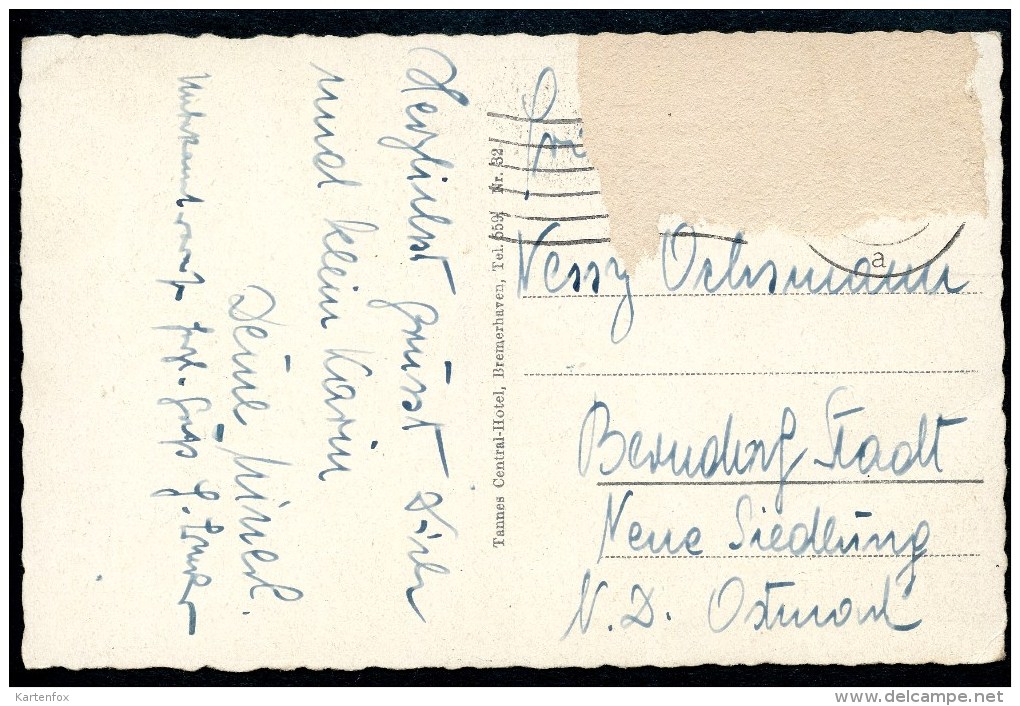 Herzlichst grüsst Dich
und klein Karin
Deine Minerl.
Unbekannterweise herzl. Grüße
Tannes Central-Hotel, Bremerhaven, Tel. 559, Nr. 32
Nessy Ochsmann
Berndorf Stadt
Neue Siedlung
N. D. Ostmark
a
Kartenfox
www.delcampe.net